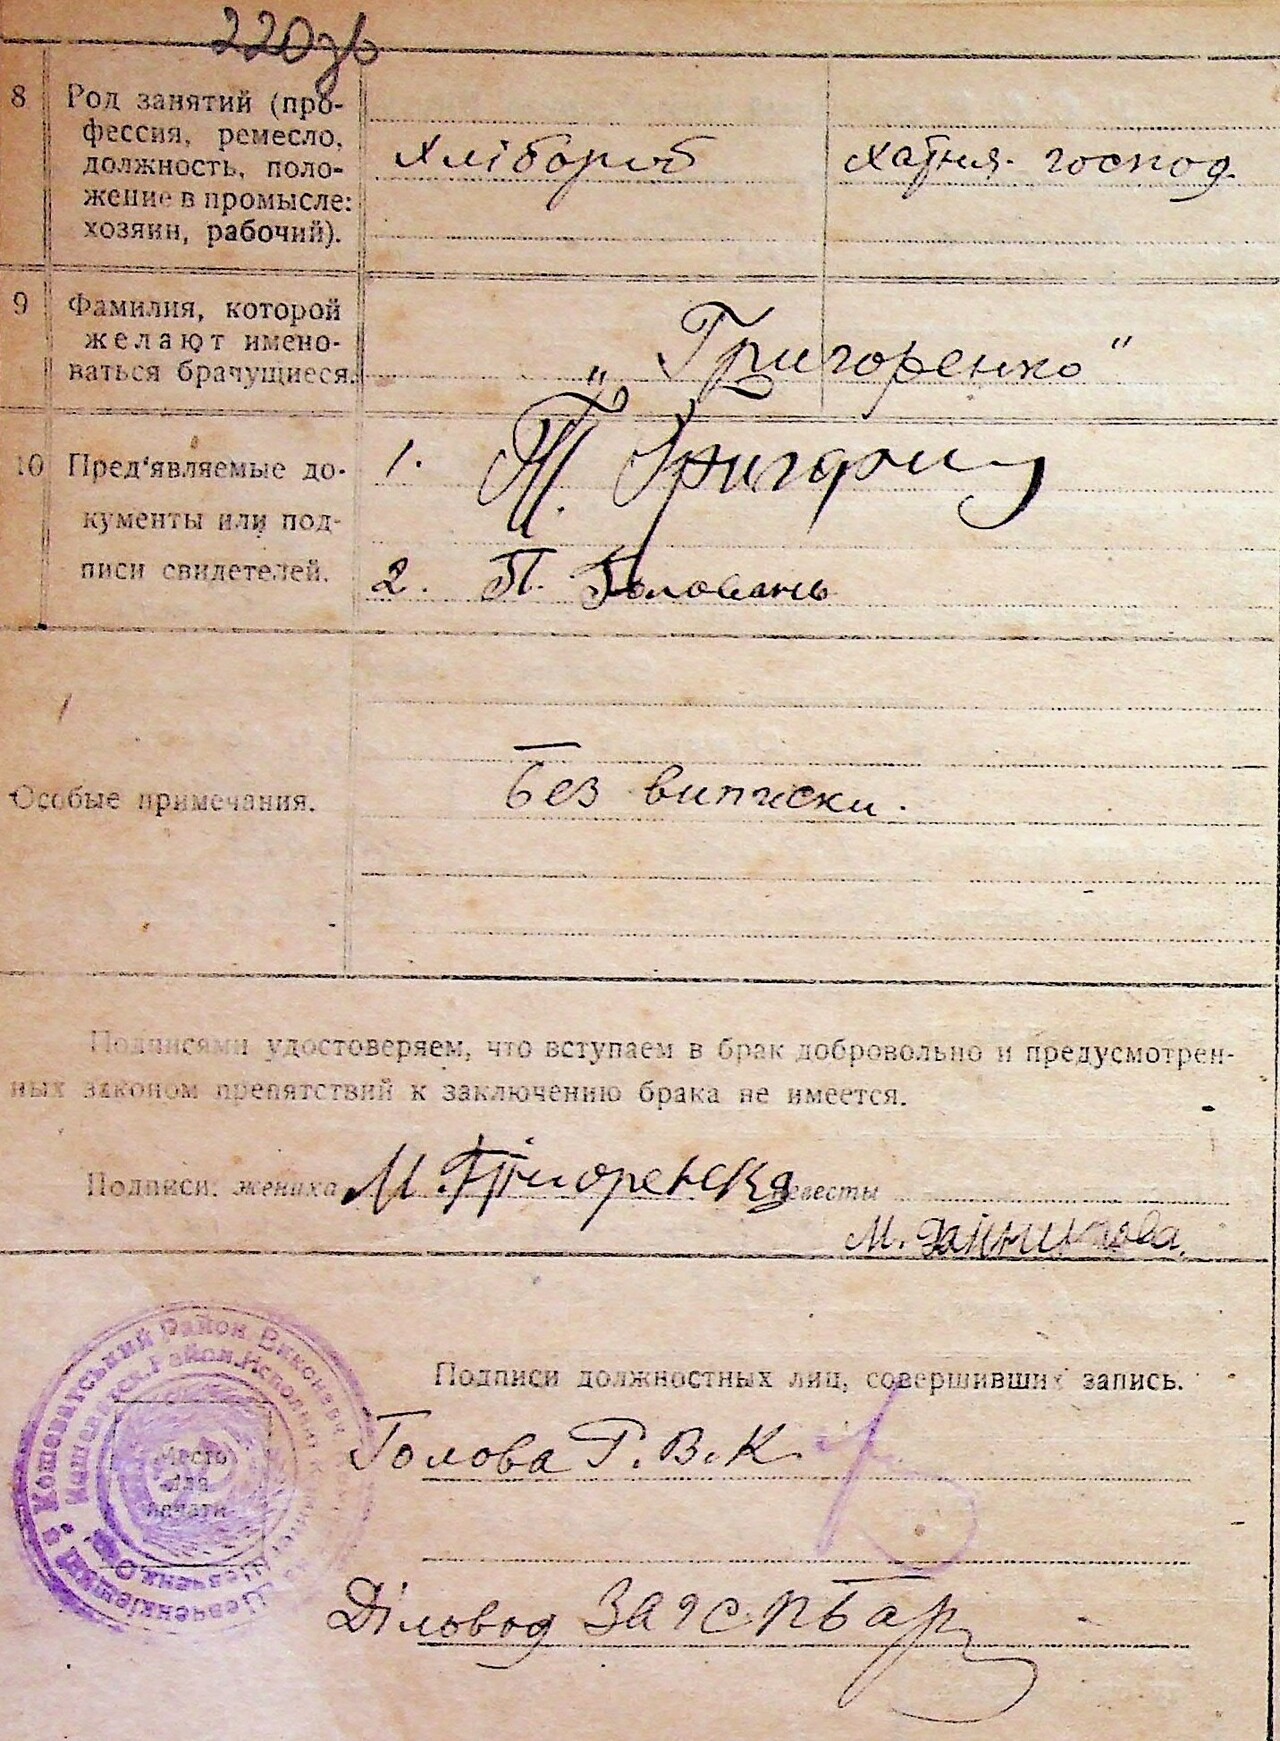 220зв
8 Род занятий (про-
фессия, ремесло,
должность, поло-
жение в промысле:
хозяин, рабочий).
хлібороб
хатня господ.
9 Фамилия, которой
желают имено-
ваться брачущиеся.
„Григоренко"
10 Пред'являемые до-
кументы или под-
писи свидетелей.
1. Т.
2. П. Головань
Особые примечания.
Без виписки.
Подписями удостоверяем, что вступаем в брак добровольно и предусмотрен-
ных законом препятствий к заключению брака не имеется.
Подписи: жениха М. Григоренко невесты
М.
Кошеватський Район Виконавч
Кошеватск. Район. Исполнит
Шевченківщини
Место
для
печати
Подписи должностных лиц, совершивших запись.
Голова Р.В.К.
Діловод ЗАГС